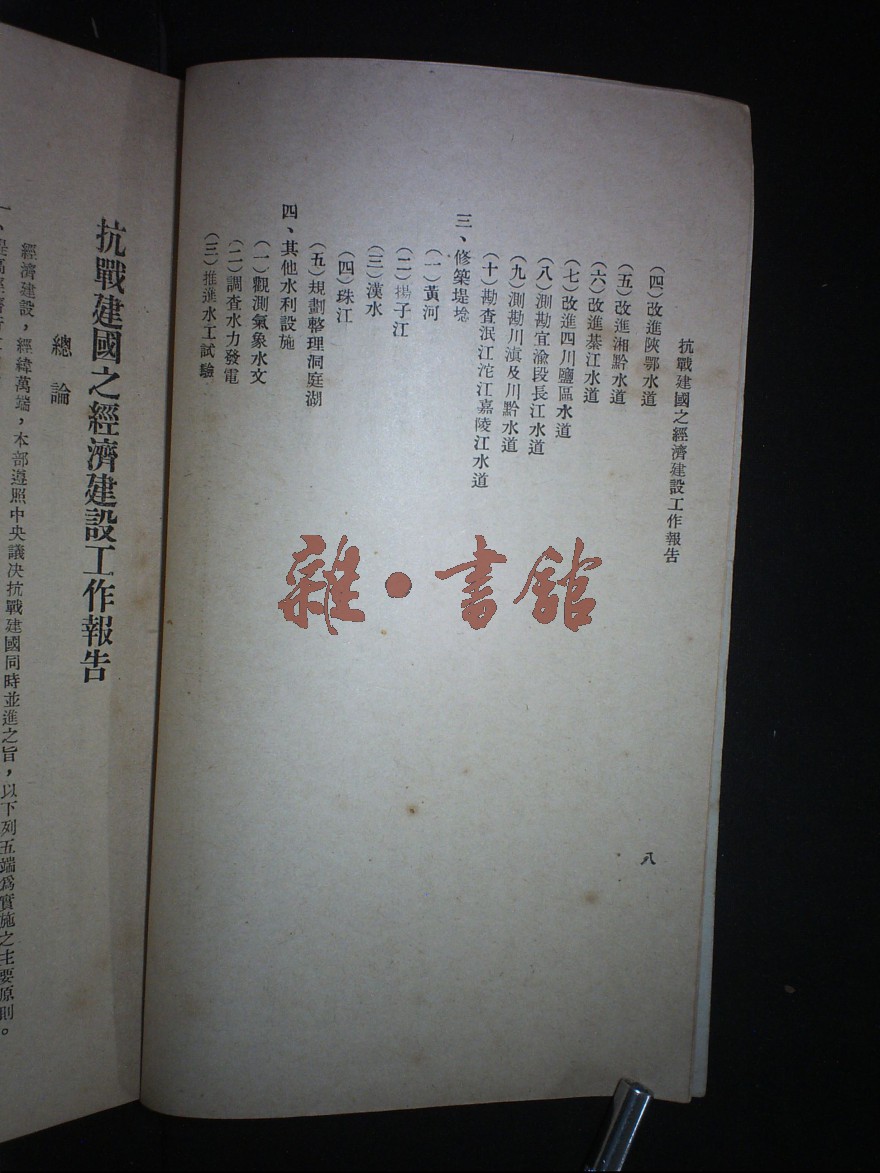 抗戰建國之經濟建設工作報告
(四)改進陝鄂水道
(五)改進湘黔水道
(六)改進綦江水道
(七)改進四川鹽區水道
(八)測勘宜渝段長江水道
(九)測勘川滇及川黔水道
(十)勘查泯江沱江嘉陵江水道
三、修築堤埝
(一)黃河
(二)揚子江
(三)漢水
(四)珠江
(五)規劃整理洞庭湖
四、其他水利設施
(一)觀測氣象水文
(二)調查水力發電
(三)推進水工試驗
八
雜·書館
抗戰建國之經濟建設工作報告
總論
經濟建設,經緯萬端,本部遵照中央議決抗戰建國同時並進之旨,以下列五端爲實施之主要原則。
一、提高經濟